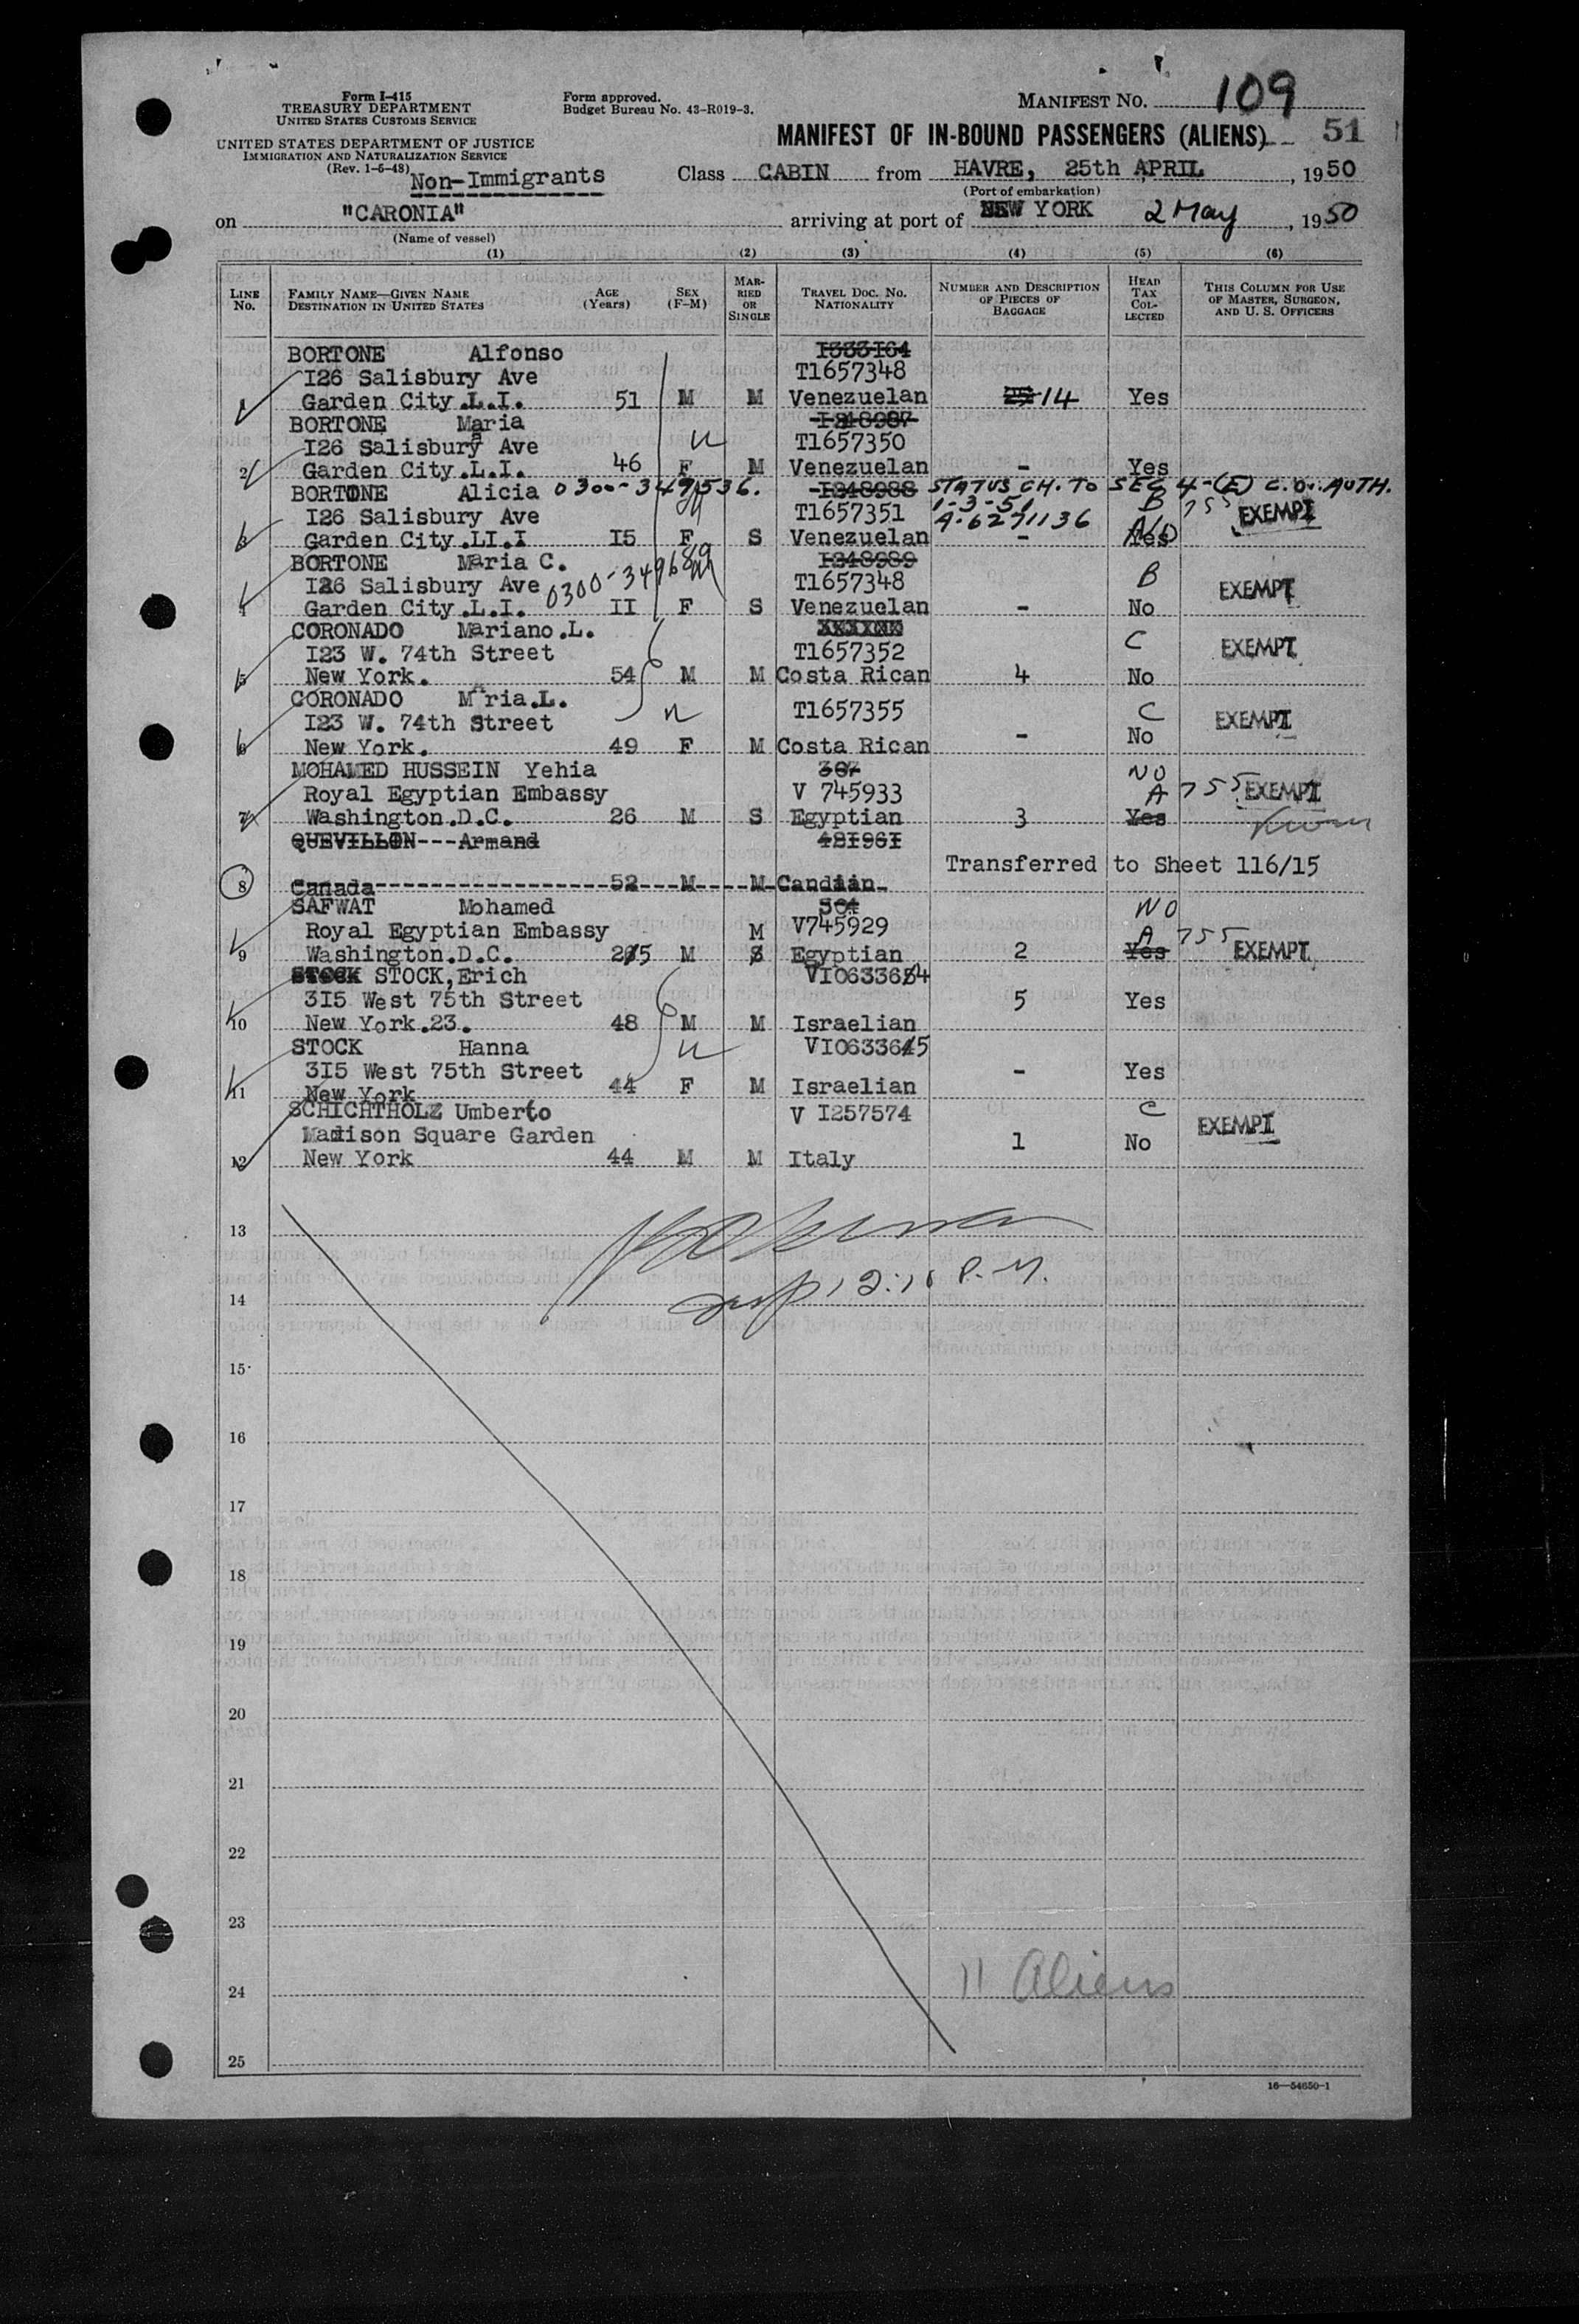 Form I-415
TREASURY DEPARTMENT
UNITED STATES CUSTOMS SERVICE
UNITED STATES DEPARTMENT OF JUSTICE
IMMIGRATION AND NATURALIZATION SERVICE
(Rev. 1-5-48)
Non-Immigrants
Form approved.
Budget Bureau No. 43-R019-3.
MANIFEST NO. 109
MANIFEST OF IN-BOUND PASSENGERS (ALIENS) 51
Class CABIN from HAVRE, 25th APRIL, 1950
(Port of embarkation)
on "CARONIA" arriving at port of NEW YORK 2 May, 1950
(Name of vessel)
(1) (2) (3) (4) (5) (6)
LINE NO.
FAMILY NAME—GIVEN NAME
DESTINATION IN UNITED STATES
AGE (Years)
SEX (F-M)
MARRIED OR SINGLE
TRAVEL DOC. NO.
NATIONALITY
NUMBER AND DESCRIPTION OF PIECES OF BAGGAGE
HEAD TAX COLLECTED
THIS COLUMN FOR USE OF MASTER, SURGEON, AND U. S. OFFICERS
BORTONE Alfonso I333164
I26 Salisbury Ave T1657348
1 Garden City.L.I. 51 M M Venezuelan 14 Yes
BORTONE Maria I248987
I26 Salisbury Ave T1657350
2 Garden City.L.I. 46 F M Venezuelan - Yes
BORTONE Alicia 0300-349536. I248988 STATUS CH. TO SEC 4-(E) C.O. AUTH.
I26 Salisbury Ave T1657351 1-3-51 B 755 EXEMPT
A-6271136
3 Garden City.LI.I I5 F S Venezuelan - Yes No
BORTONE Maria C. I248989
I26 Salisbury Ave 0300-349689 T1657348 B EXEMPT
4 Garden City.L.I. II F S Venezuelan - No
CORONADO Mariano.L.
I23 W. 74th Street T1657352 C EXEMPT
5 New York. 54 M M Costa Rican 4 No
CORONADO Maria.L.
I23 W. 74th Street T1657355 C EXEMPT
6 New York. 49 F M Costa Rican - No
MOHAMED HUSSEIN Yehia 307 NO
Royal Egyptian Embassy V 745933 A 755 EXEMPT
7 Washington.D.C. 26 M S Egyptian 3 Yes
QUEVILLON---Armand 42I96I
Transferred to Sheet 116/15
8 Canada 52 M M Candian
SAFWAT Mohamed 304 NO
Royal Egyptian Embassy M V745929 A 755
9 Washington.D.C. 25 M S Egyptian 2 Yes EXEMPT
STOCK STOCK, Erich VI063364
3I5 West 75th Street 5 Yes
10 New York.23. 48 M M Israelian
STOCK Hanna VI063365
3I5 West 75th Street - Yes
11 New York 44 F M Israelian
SCHICHTHOLZ Umberto V I257574 C EXEMPT
Madison Square Garden 1 No
12 New York 44 M M Italy
13
insp 12:15 P.M.
14
15
16
17
18
19
20
21
22
23
11 Aliens
24
25
16—54650-1